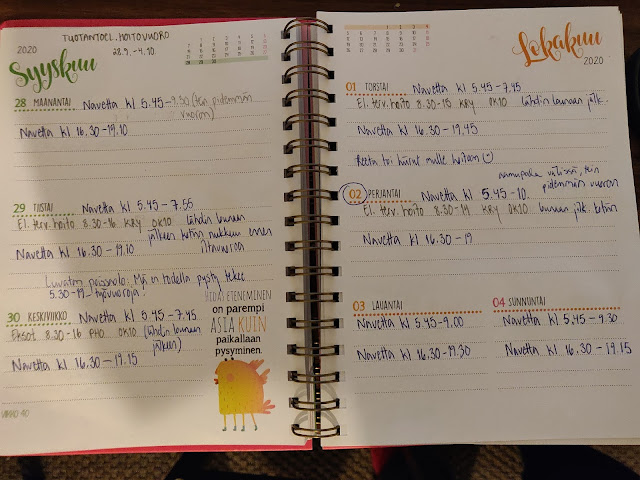 TUOTANTOEL. HOITOVUORO
28.9. - 4.10.
2020
Syyskuu
28 MAANANTAI Navetta kl 5.45 - 9.30 (tein pidemmän
vuoron)
Navetta kl 16.30 - 19.10
29 TIISTAI Navetta kl 5.45 - 7.55
El. terv. hoito 8.30-16 KRY OK10 lähdin lounaan
jälkeen kotiin nukkuu ennen
Navetta kl 16.30 - 19.10 iltavuoroa
Luvaton poissaolo. Mä en todella pysty tekee
5.30-19 työvuoroja!
30 KESKIVIIKKO Navetta kl 5.45 - 7.45
Eksot 8.30-16 PHO OK10 (lähdin lounaan
jälkeen)
Navetta kl 16.30 - 19.15
HIDAS ETENEMINEN
on parempi
ASIA KUIN
paikallaan
pysyminen.
VIIKKO 40
Lokakuu
2020
01 TORSTAI Navetta kl 5.45 - 7.45
El. terv. hoito 8.30-15 KRY OK10 lähdin lounaan jälk.
Navetta kl 16.30 - 19.45
Reeta toi mulle
aamupala välissä, tein
pidemmän vuoron
02 PERJANTAI Navetta kl 5.45 - 10.
El. terv. hoito 8.30-14 KRY OK10 lounaan jälk. kotiin
Navetta kl 16.30 - 19
03 LAUANTAI
Navetta kl 5.45 - 9.00
Navetta kl 16.30 - 19.30
04 SUNNUNTAI
Navetta kl 5.45 - 9.30
Navetta kl 16.30 - 19.15